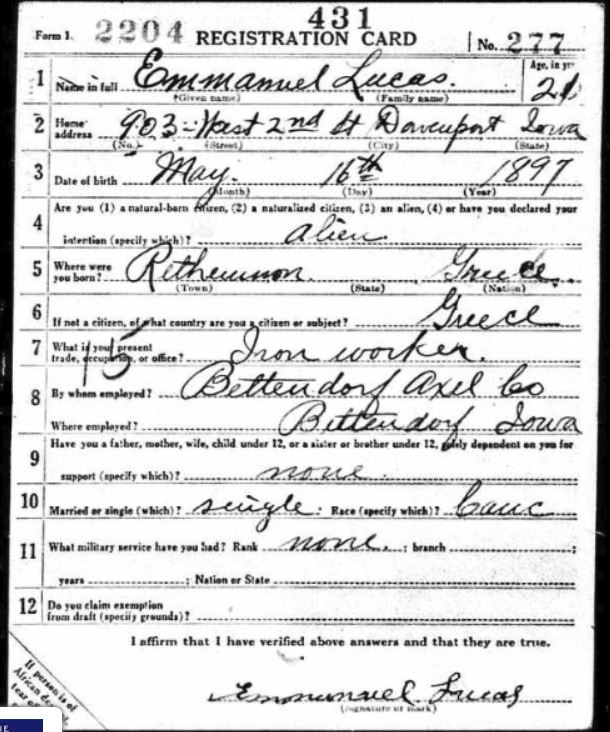 431
Form 1. 2204 REGISTRATION CARD No. 277
1 Name in full Emmanuel Lucas. Age, in yrs
(Given name) (Family name) 21
2 Home address 903 - West 2nd St Davenport Iowa
(No.) (Street) (City) (State)
3 Date of birth May. 16th 1897
(Month) (Day) (Year)
4 Are you (1) a natural-born citizen, (2) a naturalized citizen, (3) an alien, (4) or have you declared your
intention (specify which)? alien
5 Where were you born? Rethemnon. Greece.
(Town) (State) (Nation)
6 If not a citizen, of what country are you a citizen or subject? Greece
7 What is your present trade, occupation, or office? Iron worker.
15
8 By whom employed? Bettendorf Axel Co
Where employed? Bettendorf Iowa
9 Have you a father, mother, wife, child under 12, or a sister or brother under 12, solely dependent on you for
support (specify which)? none.
10 Married or single (which)? single. Race (specify which)? Cauc
11 What military service have you had? Rank none. ; branch ;
years ; Nation or State
12 Do you claim exemption
from draft (specify grounds)?
I affirm that I have verified above answers and that they are true.
Emmanuel Lucas
(Signature or mark)
If person is of
African
tear
HE